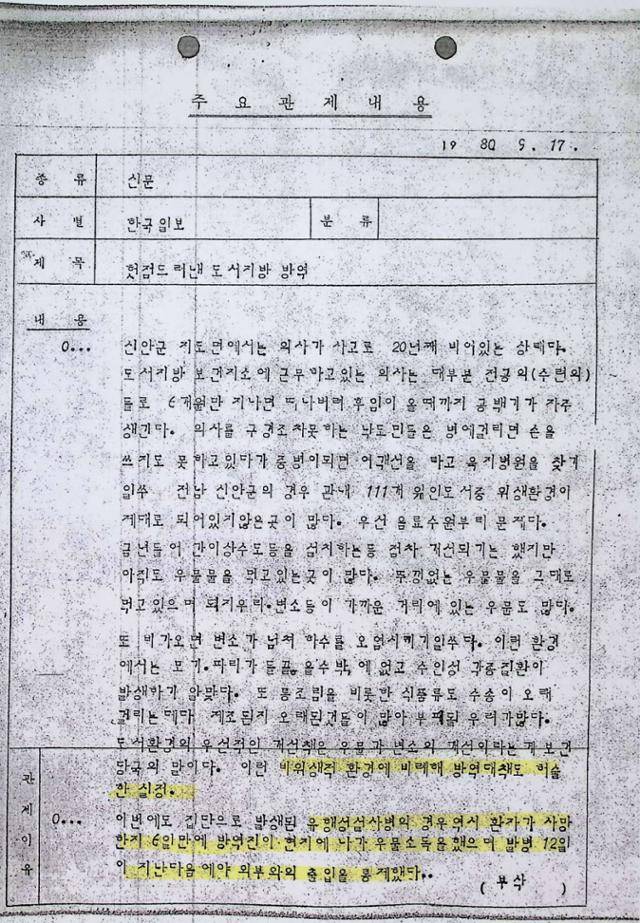 주 요 관 제 내 용
19 80 9. 17.
종 류 신문
사 별 한국일보 분 류
제 목 헛점드러낸 도서지방 방역
내 용
0... 신안군 지도면에서는 의사가 사고로 20년째 비어있는 상태다.
도서지방 보건지소에 근무하고있는 의사는 대부분 전공의(수련의)
들로 6개월만 지나면 떠나버려 후임이 올때까지 공백기가 자주
생긴다. 의사를 구경조차못하는 낙도민들은 병에걸리면 손을
쓰지도 못하고있다가 중병이되면 여객선을 타고 육지병원을 찾기
일쑤 전남 신안군의 경우 관내 111개 유인도서중 위생환경이
제대로 되어있지않은곳이 많다. 우선 음료수원부터 문제다.
금년들어 간이상수도등을 설치하는등 점차 개선되기는 했지만
아직도 우물물을 먹고있는곳이 많다. 뚜껑없는 우물물을 그대로
먹고있으며 돼지우리.변소등이 가까운 거리에 있는 우물도 많다.
또 비가오면 변소가 넘쳐 하수를 오염시키기일쑤다. 이런 환경
에서는 모기.파리가 들끓을수밖에 없고 수인성 각종질환이
발생하기 알맞다. 또 통조림을 비롯한 식품류도 수송이 오래
걸리는데다 제조된지 오래된것들이 많아 부패될 우려가많다.
도서환경의 우선적인 개선책은 우물과 변소의 개선이라는게 보건
당국의 말이다. 이런 비위생적 환경에 비례해 방역대책도 허술
한 실정.
관 제 이 유
0... 이번에도 집단으로 발생된 유행성설사병의 경우역시 환자가 사망
한지 6일만에 방역진이 현지에 나가 우물소독을했으며 발병 12일
이 지난다음에야 외부와의 출입을 통제했다..
( 부 삭 )